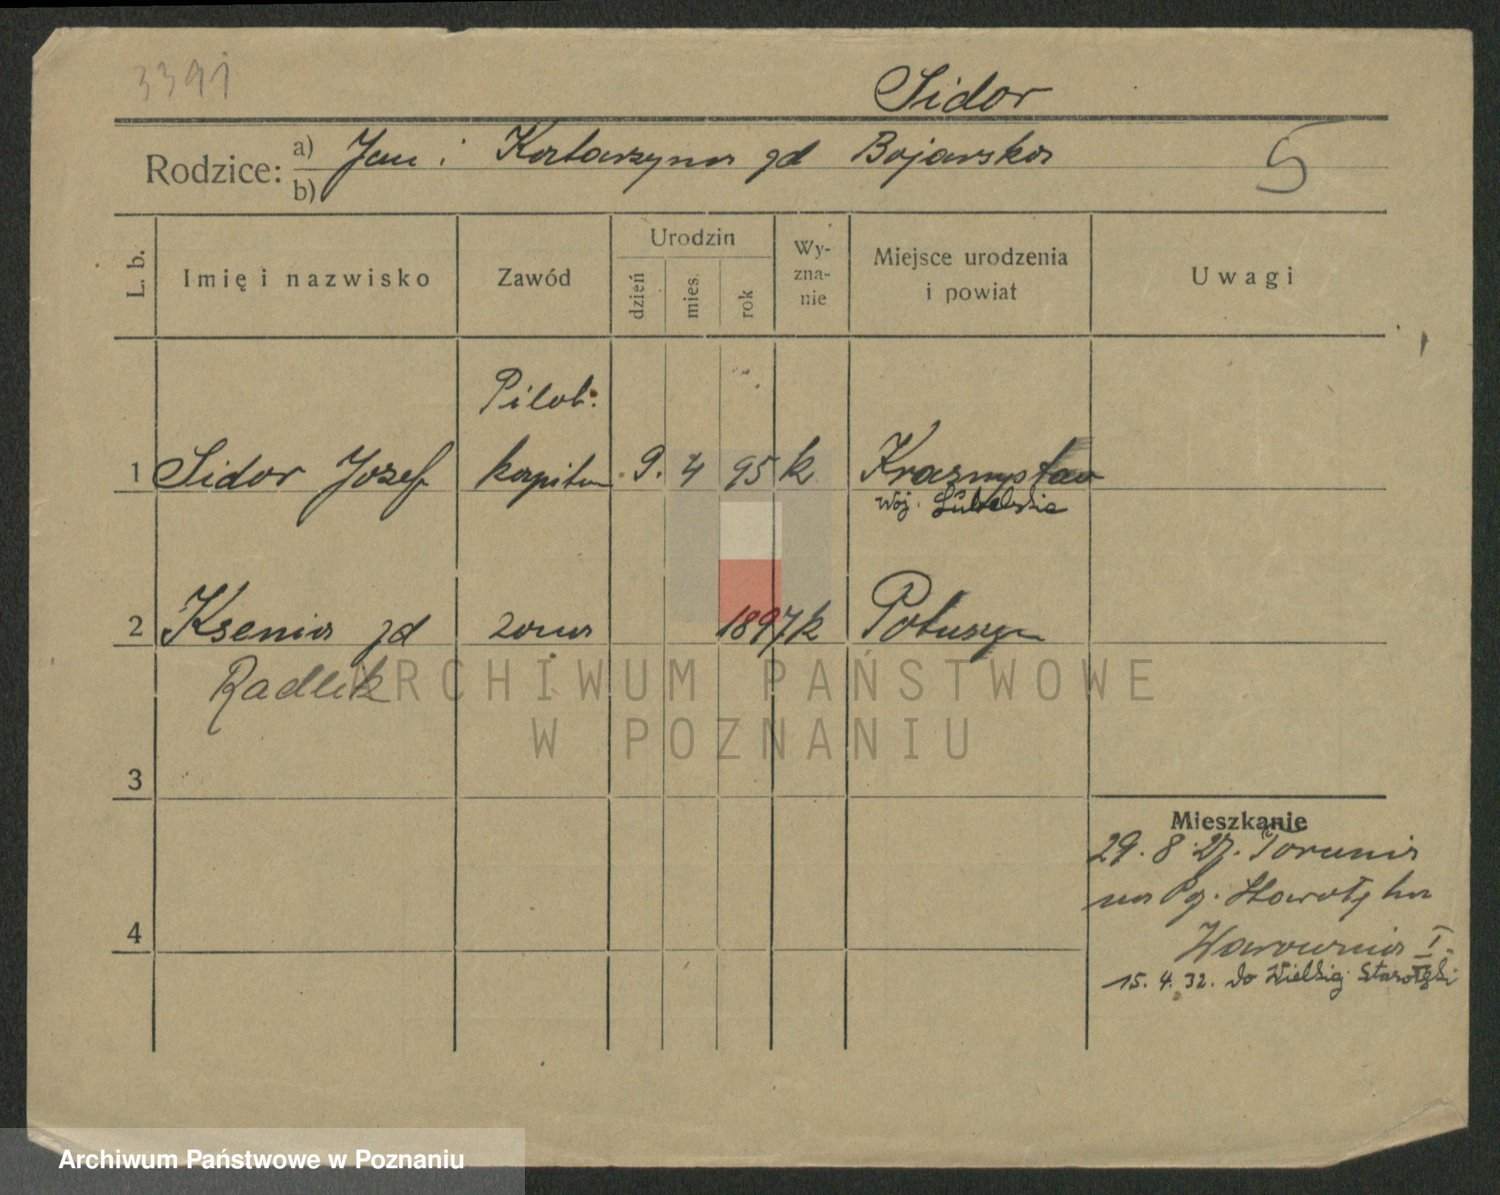 3391
Sidor
Rodzice: a) Jan i Katarzyna zd Bojarska
b)
5
L. b.
Imię i nazwisko
Zawód
Urodzin
dzień
mies.
rok
Wy-
zna-
nie
Miejsce urodzenia
i powiat
Uwagi
Pilot.
1 Sidor Józef kapitan 9. 4 95 k Krasnystaw
woj. Lubelskie
2 Ksenia zd żona 1897 k
Radlik
ARCHIWUM PAŃSTWOWE
W POZNANIU
3
Mieszkanie
29. 8. 27. Torunia
na
4
Warownia I.
15. 4. 32. do Wielkiej Starołęki
Archiwum Państwowe w Poznaniu